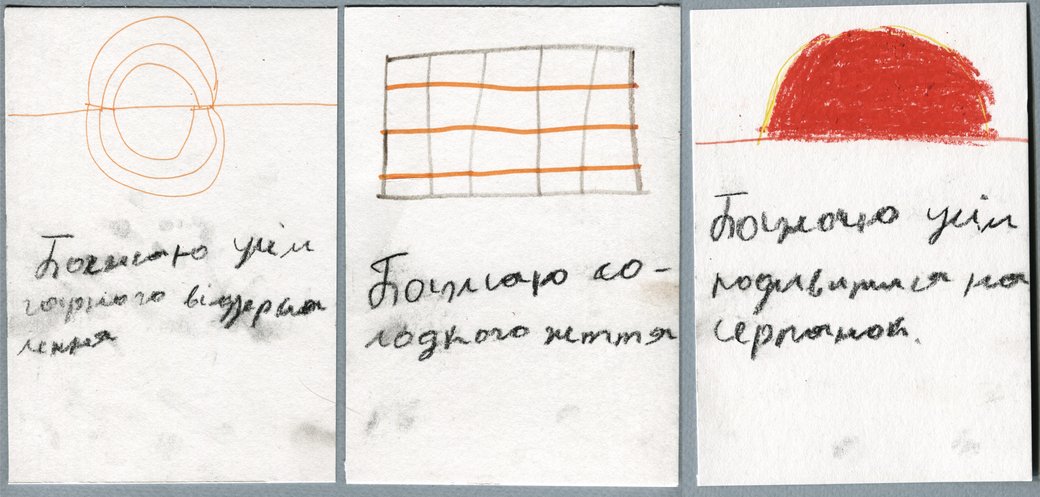 Бажаю усім
гарного відзерка
лення
Бажаю со-
лодкого життя
Бажаю усім
подивитися на
серпанок.